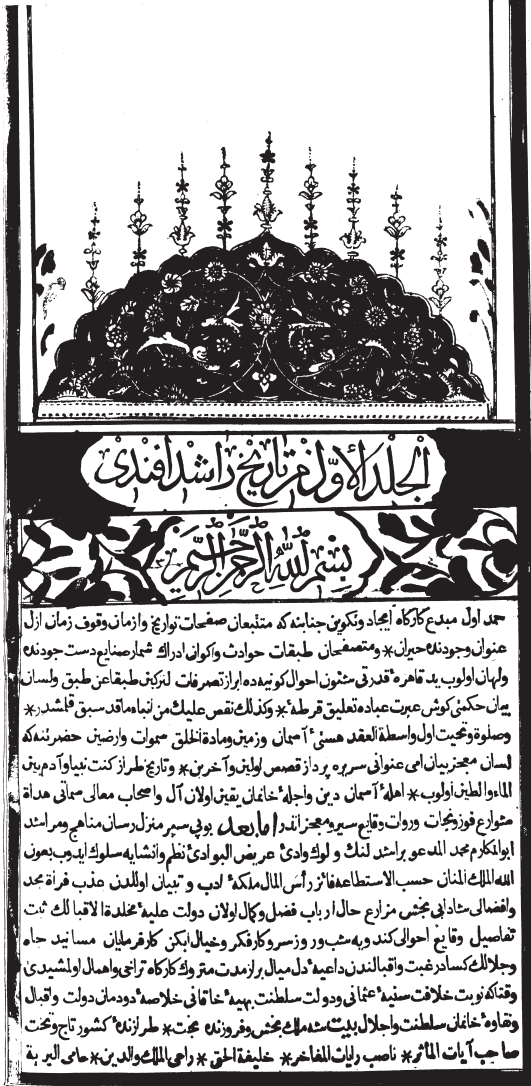 الجلد الأول من تاريخ راشد افندى
بسم الله الرحمن الرحيم
حمد اول مبدع كارگاه ايجاد وتكوين جنابنه كه متتبعان صفحات تواريخ وازمان وقوف زمان ازل
عنوان وجودنده حيران * ومتصفحان طبقات حوادث واكوان ادراك شمار صنايع دست جودنده
ولهان اولوب يد قاهرۀ قدرتى شئون احوال كونيه ده ابراز تصرفات لتركبن طبقا عن طبق ولسان
بيان حكمتى كوش عبرت عباده تعليق قرطۀ * وكذلك نقص عليك من انباء ما قد سبق قلمشدر *
وصلوة وتحيت اول واسطة العقد هستئ آسمان وزمين ومادة الخلق سموات وارضين حضرتنه كه
لسان معجز بيان امى عنوانى سربره پرداز قصص اولين وآخرين * وتاريخ طراز كنت نبيا وآدم بين
الماء والطين اولوب * اهلۀ آسمان دين واجلۀ خانمان يقين اولان آل واصحاب معالى سمانى هداة
شوارع فوز ونجات وروات وقايع سير ومعجزاتدر اما بعد بوپى سپر منزل رسان مناهج ومراشد
ابو المكارم محمد المدعو براشد لنك ولوك وادئ عريض البوادئ نظم وانشايه سلوك ايدوب بعون
الله الملك المنان حسب الاستطاعه فائز رأس المال ملكۀ ادب وتبيان اوللدن عذب فرات مجد
وافضالى شادابى بخش مزارع حال ارباب فضل وكمال اولان دولت عليۀ مخلدة الاقبالك ثبت
تفاصيل وقايع احوالى كندويه شب وروز سر وكار فكر وخيال ايكن كارفرمايان مسانيد جاه
وجلالك كساد رغبت واقبالندن داعيۀ دل ميال بر از مدت متروك كارگاه تراخى واهمال اولمشيدى
وقتاكه نوبت خلافت سنيۀ عثمانى ودولت سلطنت بهيۀ خاقانى خلاصۀ دودمان دولت واقبال
ونقاوۀ خانمان سلطنت واجلال بيت شه ملك بخش وفروزنده بخت * طرازندۀ كشور تاج وتخت
صاحب آيات المآثر * ناصب رايات المفاخر * خليفة الحق * راعى الملك والدين * حامى البرية